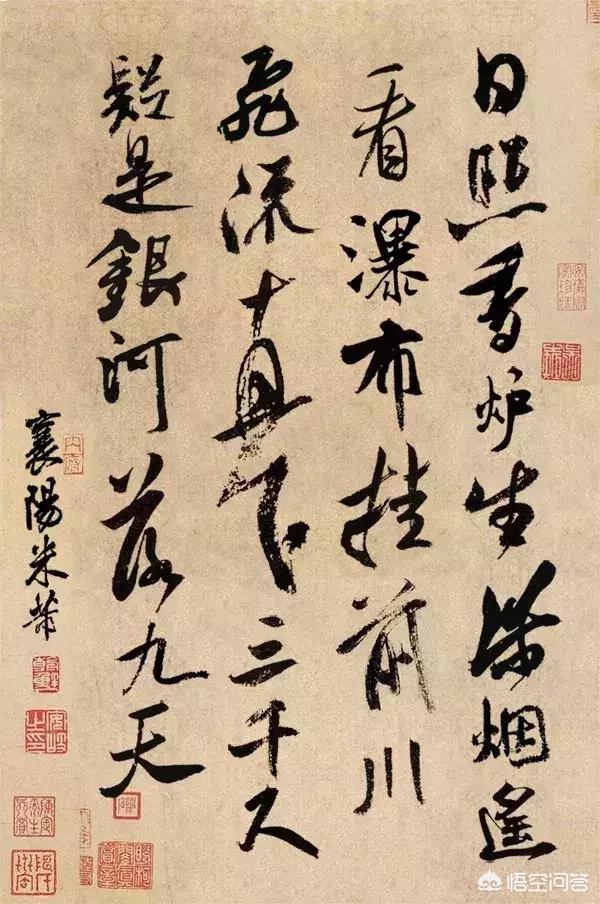 日照香炉生紫烟遙
看瀑布挂前川
飛流直下三千尺
疑是銀河落九天
襄陽米芾
悟空问答